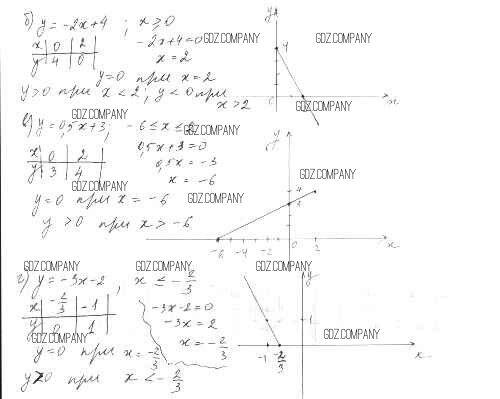 б) y = -2x+4 ; x ≥ 0
x | 0 | 2
y | 4 | 0
-2x+4=0
x=2
y=0 при x=2
y>0 при x<2; y<0 при
x>2
GDZ.COMPANY
GDZ.COMPANY
GDZ.COMPANY
GDZ.COMPANY
y
4
0
x
в) y=0,5x+3, -6≤x≤2
x | 0 | 2
y | 3 | 4
0,5x+3=0
0,5x=-3
x=-6
y=0 при x=-6
y>0 при x>-6
GDZ.COMPANY
GDZ.COMPANY
GDZ.COMPANY
GDZ.COMPANY
y
4
3
-6 -4 -2 0 2
x
GDZ.COMPANY
GDZ.COMPANY
GDZ.COMPANY
г) y=-3x-2, x ≤ -2/3
x | -2/3 | -1
y | 0 | 1
-3x-2=0
-3x=2
x=-2/3
y=0 при x=-2/3
y>0 при x<-2/3
GDZ.COMPANY
GDZ.COMPANY
GDZ.COMPANY
y
1
-1 -2/3
x